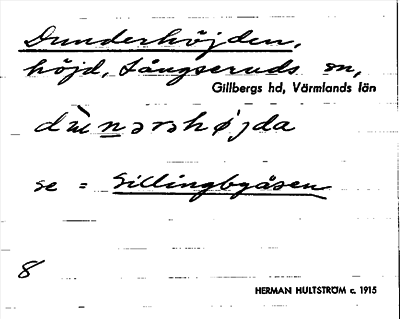 Dunderhöjden,
höjd, Långseruds sn,
Gillbergs hd, Värmlands län
dùnǝrshø̀jda
se = Gillingbyåsen
8
HERMAN HULTSTRÖM c. 1915